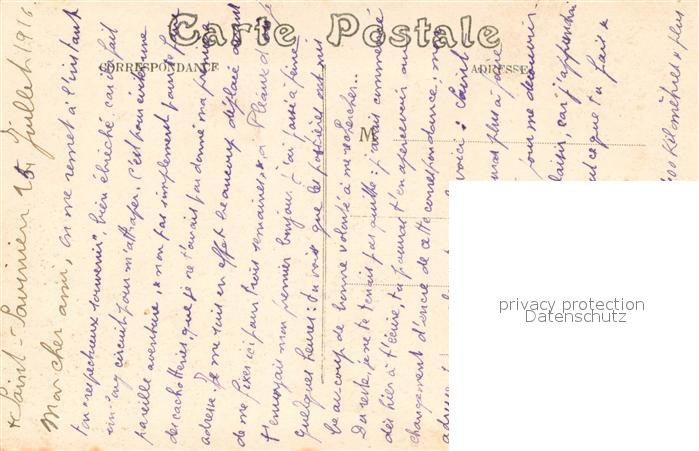 Carte Postale
CORRESPONDANCE
ADRESSE
M
Saint-Savinien 15 Juillet 1916.
Mon cher ami, on me remet à l'instant
ton "respectueux souvenir", bien ébréché car il a fait
un long circuit pour m'attraper. C'est bien une
pareille aventure, & non pas simplement pour te faire
des cachotteries, que je ne t'avais pas donné ma première
adresse. Je me suis en effet beaucoup déplacé avant
de me fixer ici pour trois semaines, & à
t'envoyais mon premier bonjour. J'ai aussi à faire
quelques heures: tu vois que les postières ont mis
beaucoup de bonne volonté à me rechercher..
Du reste, je ne te tenais pas quitte: j'avais commencé
dès hier à t'écrire, tu pourras t'en apercevoir au
changement d'encre de cette correspondance; mon
adresse: voici:
plus à
pour me découvrir
plaisir, car j'apprendrai
tout ce que tu fais &
500 kilomètres & plus
privacy protection
Datenschutz